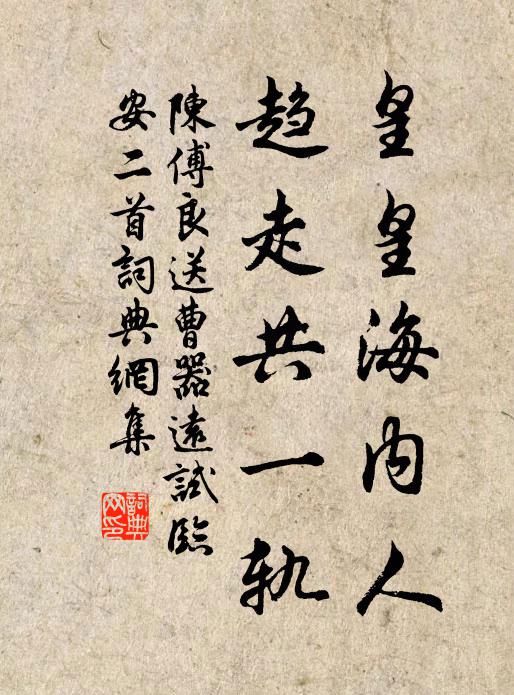 皇皇海内人
趋走共一軌
陳傅良送曹器遠試臨
安二首詞典網集
詞典網印